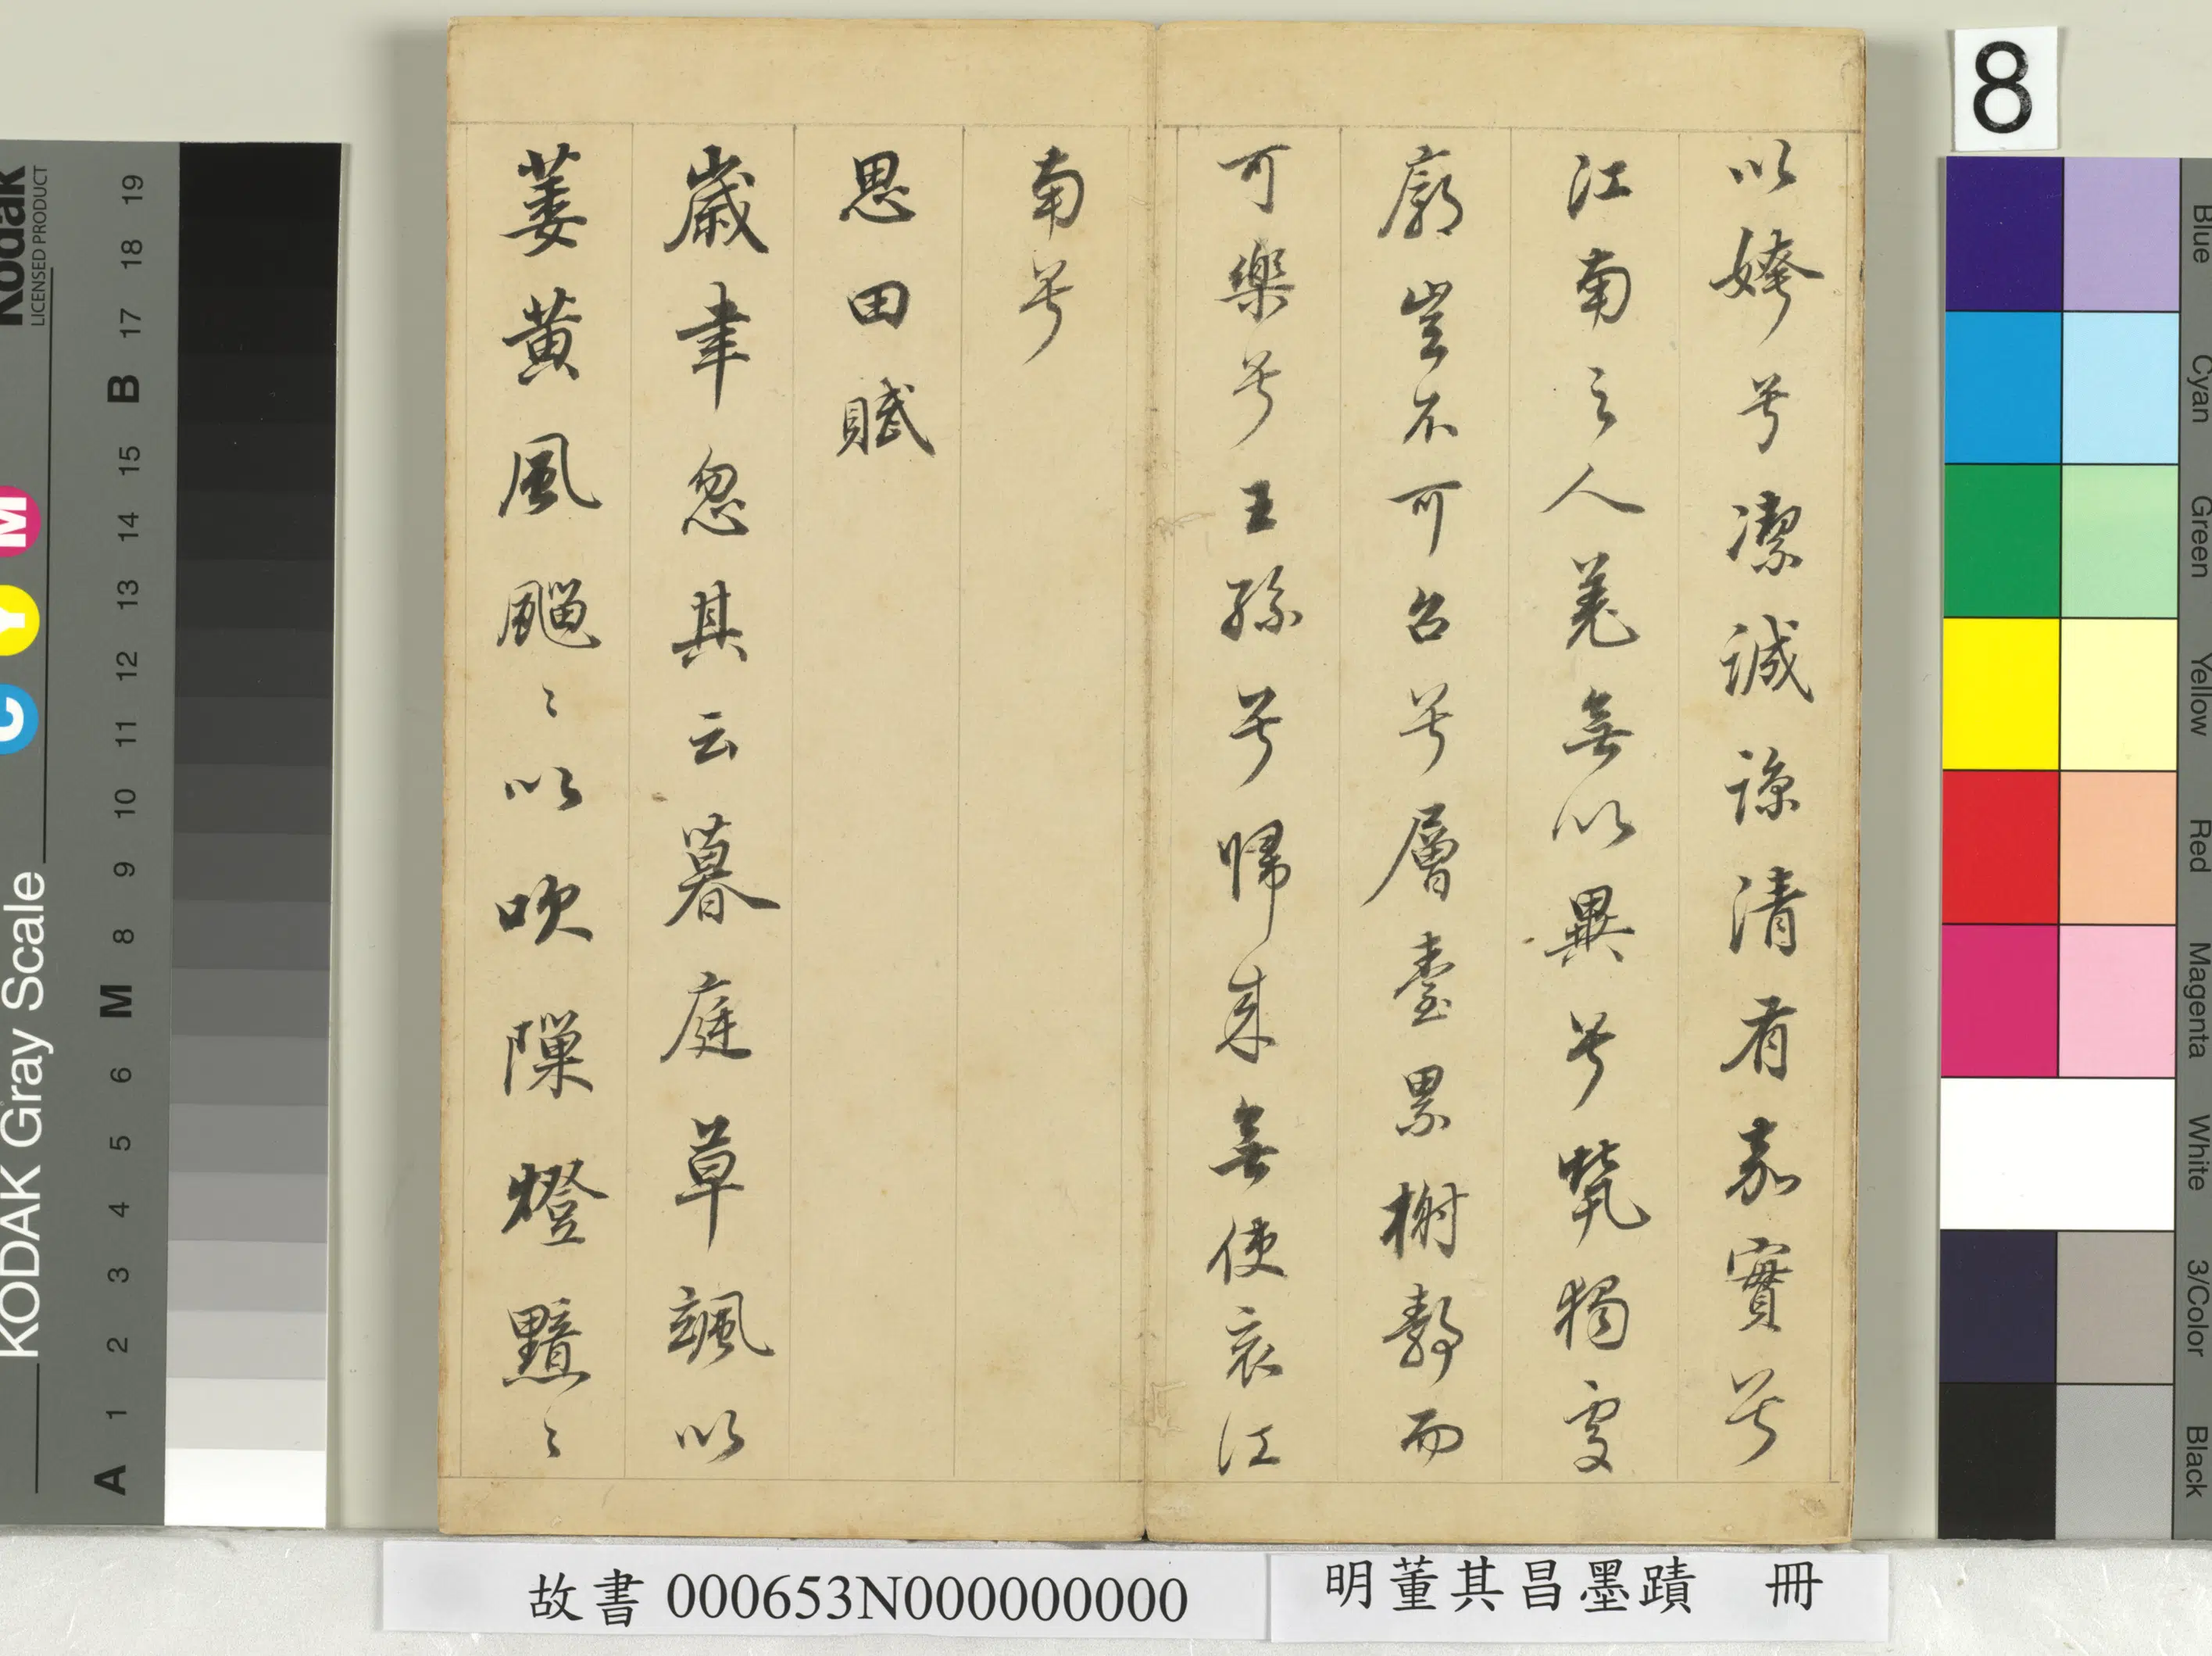 8
以姱兮潔誠諒清有嘉實兮
江南之人羌無以異兮煢獨處
廓豈不可召兮層臺累榭靜而
可樂兮王孫兮歸來無使哀江
南兮
思田賦
歲聿忽其云暮庭草颯以
萋黃風飀〻以吹隟燈黯〻
故書 000653N000000000
明董其昌墨蹟 冊
Kodak
LICENSED PRODUCT
KODAK Gray Scale
C Y M
A 1 2 3 4 5 6 M 8 9 10 11 12 13 14 15 B 17 18 19
Blue
Cyan
Green
Yellow
Red
Magenta
White
3/Color
Black